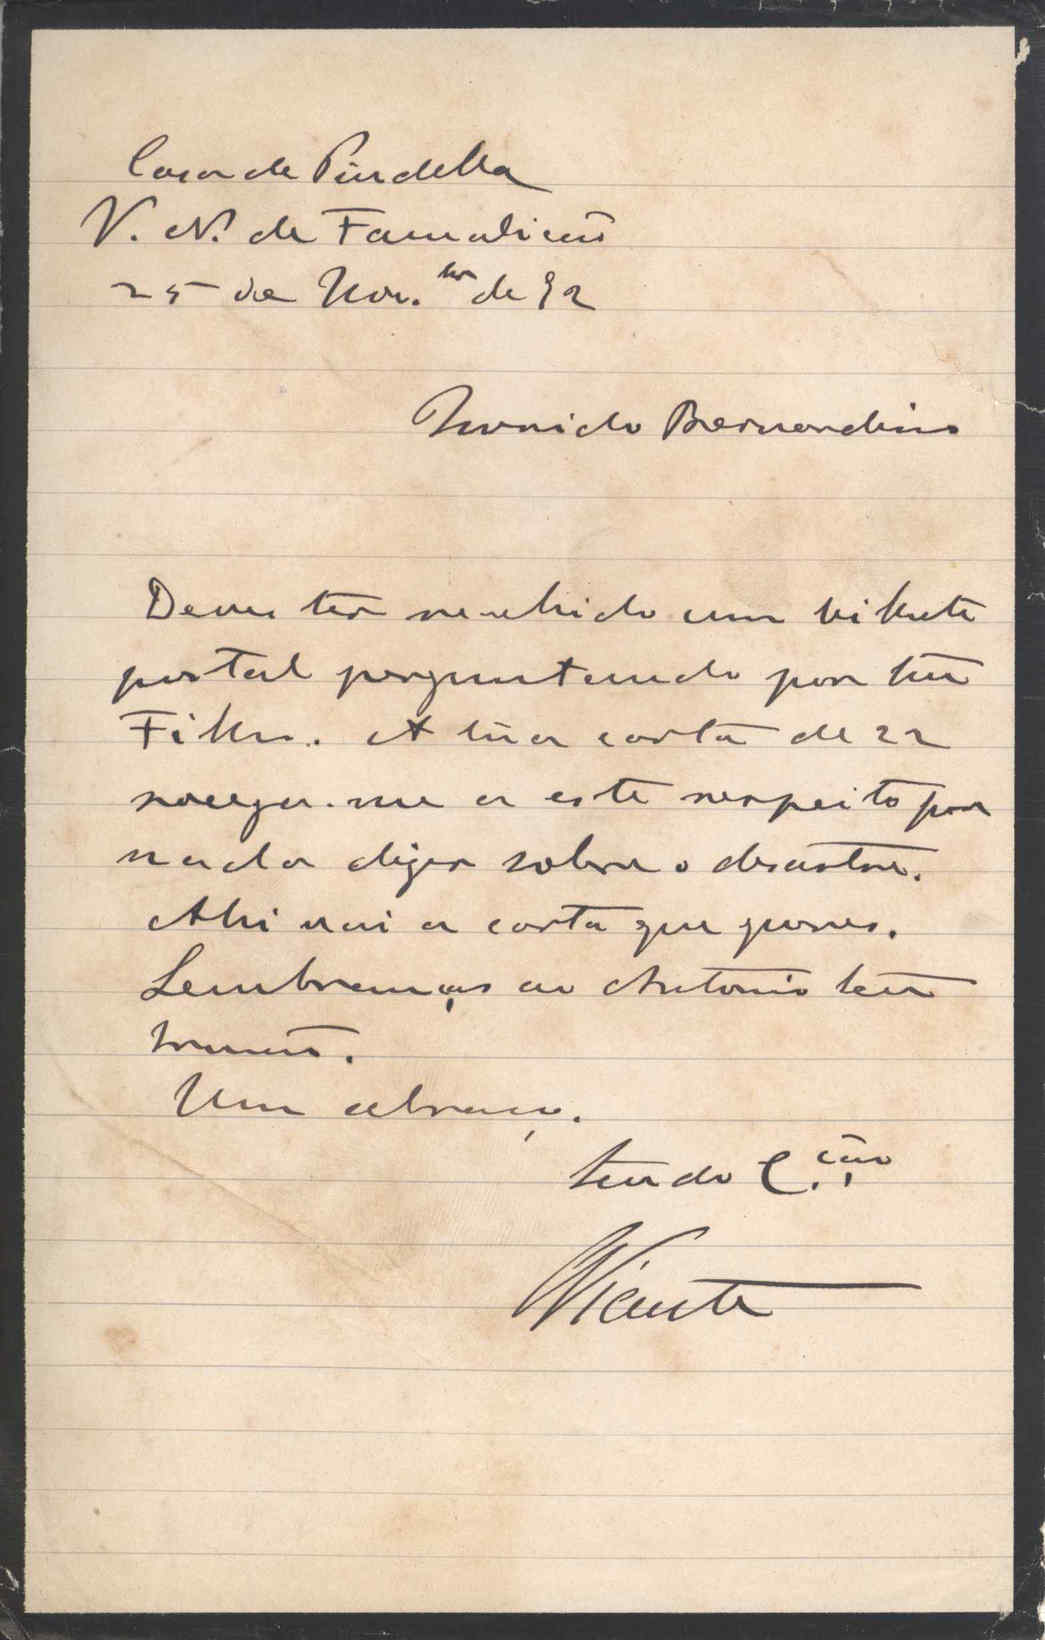 Casa de Pindella
V. N. de Famalicão
25 de Nov.bro de 92
Querido Bernardino
Deves ter recebido um bilhete
postal perguntando por teu
Filho. A tua carta de 22
socega-me a este respeito por
nada dizer sobre o desastre.
Ahi vai a carta que queres.
Lembranças ao Antonio teu
Irmão.
Um abraço.
Teu do C.
Vicente